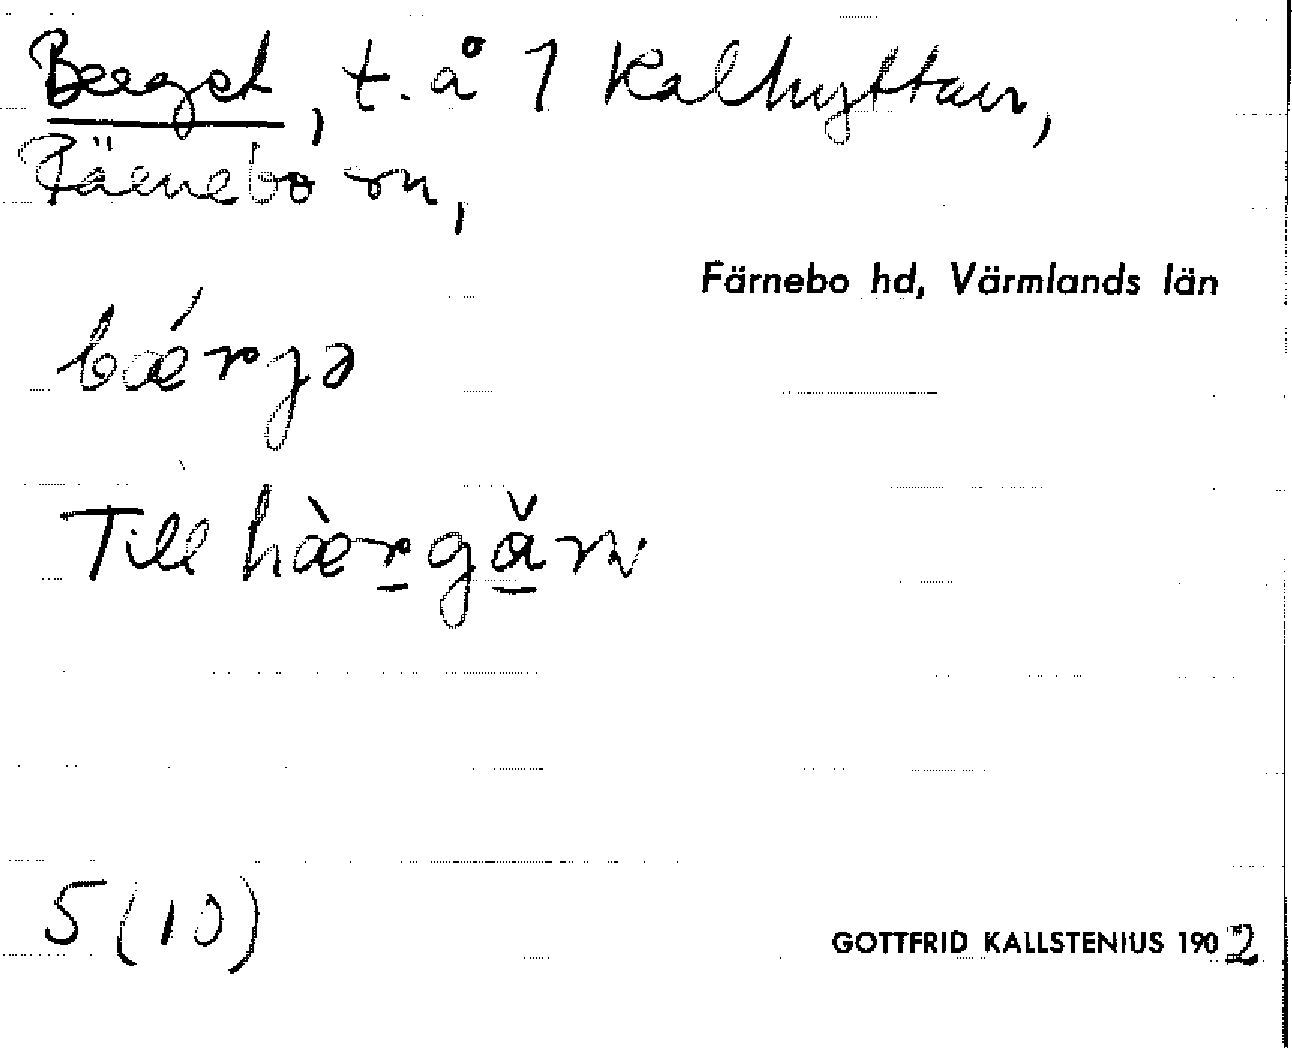 Berget, t. å 1 Kalhyttan,
Färnebo sn,
Färnebo hd, Värmlands län
bǽrjə
Till hæ̀rgǎrn
5 (10)
GOTTFRID KALLSTENIUS 1902